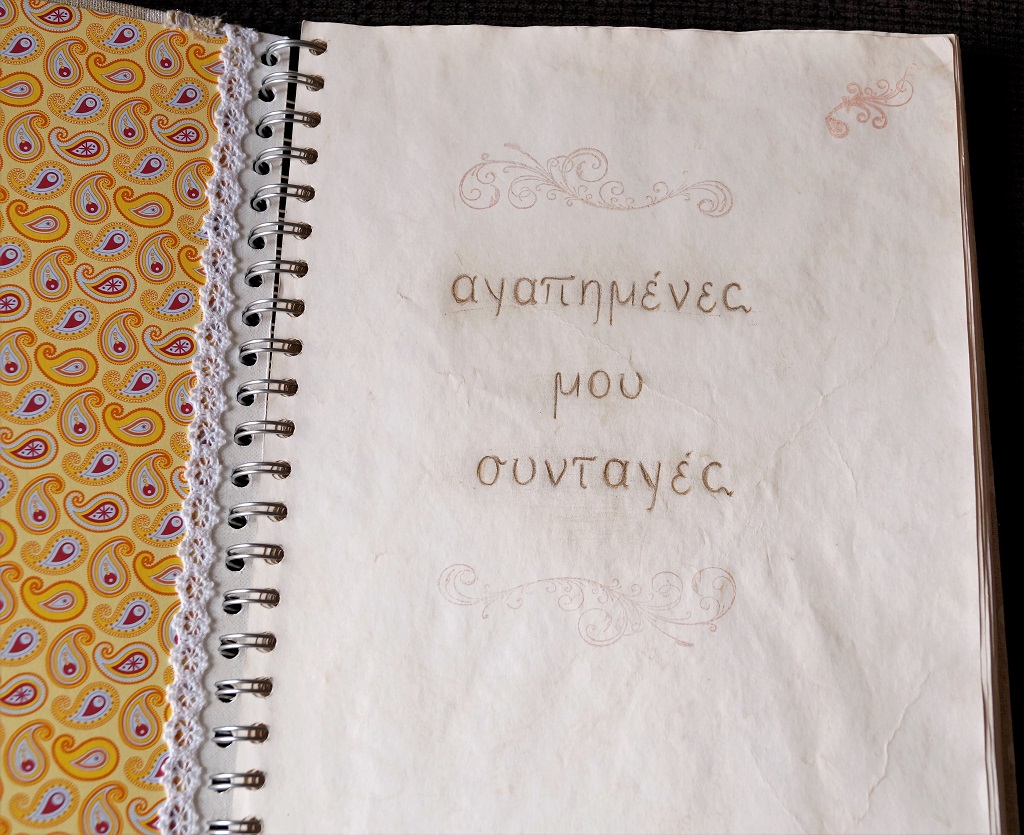 αγαπημένες
μου
συνταγές